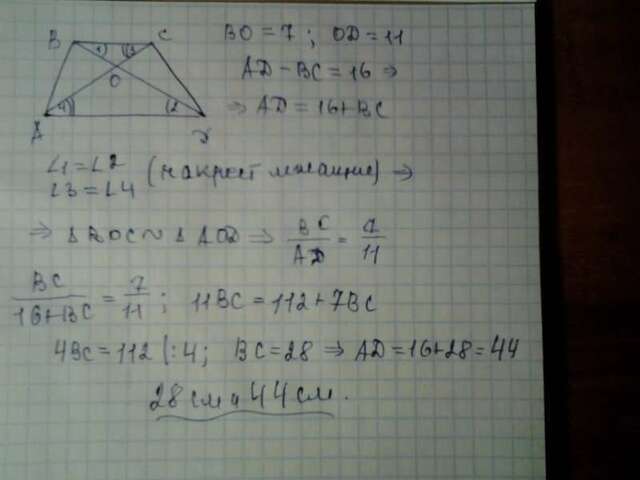 B C
1 3
O
4 2
A D
BO = 7 ; OD = 11
AD - BC = 16 ⇒
⇒ AD = 16 + BC
∠1 = ∠2
∠3 = ∠4 (накрест лежащие) ⇒
⇒ Δ BOC ~ Δ AOD ⇒ BC/AD = 7/11
BC/(16+BC) = 7/11 ; 11BC = 112 + 7BC
4BC = 112 |: 4 ; BC = 28 ⇒ AD = 16 + 28 = 44
28 см и 44 см.